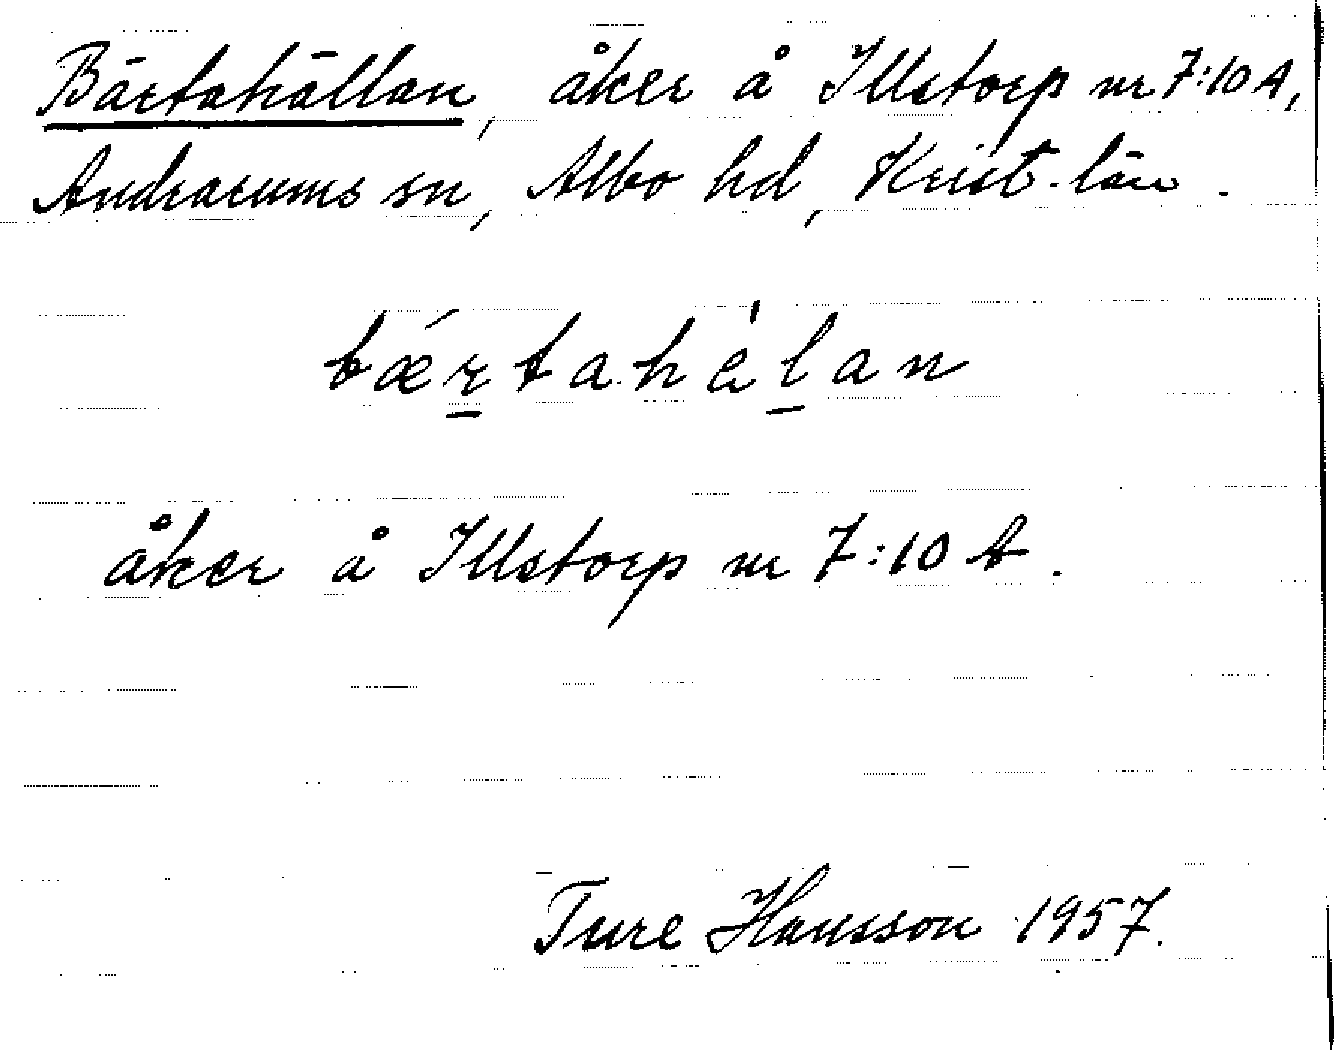 Bärtahällan, åker å Illstorp nr 7:10A,
Andrarums sn, Albo hd, Krist. län.
bǽr̠tahàl̠an
åker å Illstorp nr 7:10 A.
Ture Hansson 1957.